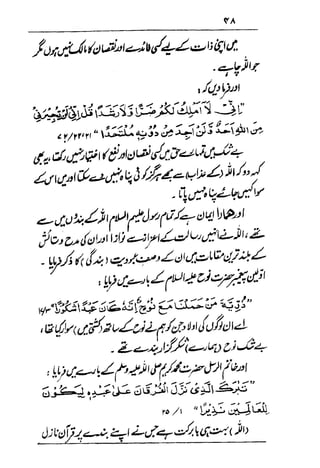 ۳۸
میں اپنی ذات کے لیے کسی فائدے اور نقصان کا مالک نہیں ہوں مگر
جو اللہ چاہے۔
اور فرما دیں کہ:
"اِنِّیْ لَا اَمْلِكُ لَكُمْ ضَرًّا وَّلَا رَشَدًا قُلْ اِنِّیْ لَنْ یُّجِیْرَنِیْ
مِنَ اللّٰهِ اَحَدٌ وَّلَنْ اَجِدَ مِنْ دُوْنِهٖ مُلْتَحَدًا" ۷۲/۲۲،۲۱
بے شک میں تمہارے حق میں کسی نقصان اور نفع کا اختیار نہیں رکھتا یہ بھی
کہہ دو کہ اللہ (کے عذاب) سے مجھے ہرگز کوئی پناہ نہیں دے سکتا اور میں اس کے
سوا کہیں جائے پناہ نہیں پاتا۔
اور ہمارا ایمان ہے کہ تمام رسول علیہم السلام اللہ کے بندوں میں سے
تھے، اللہ نے انہیں رسالت کے اعزاز سے نوازا اور ان کی مدح و ستائش
کے بلند ترین مقامات میں ان کے وصف عبودیت (بندگی) کا ذکر فرمایا۔
اولین پیغمبر حضرت نوح علیہ السلام کے بارے میں فرمایا:
"ذُرِّیَّةَ مَنْ حَمَلْنَا مَعَ نُوْحٍ اِنَّهٗ كَانَ عَبْدًا شَكُوْرًا" ۱۷/۳
اے ان لوگوں کی اولاد جن کو ہم نے نوح کے ساتھ (کشتی میں) سوار کیا تھا،
بے شک نوح (ہمارے) شکر گزار بندے تھے۔
اور خاتم الرسل حضرت محمد کریم صلی اللہ علیہ وسلم کے بارے میں فرمایا:
"تَبٰرَكَ الَّذِیْ نَزَّلَ الْفُرْقَانَ عَلٰی عَبْدِهٖ لِیَكُوْنَ
لِلْعَالَمِیْنَ نَذِیْرًا" ۲۵/۱
(اللہ) بہت ہی بابرکت ہے جس نے اپنے بندے پر قرآن نازل